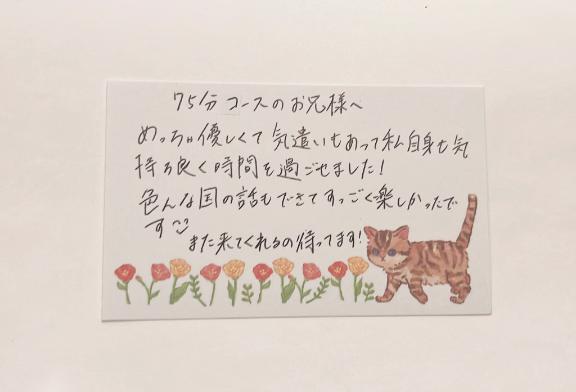 75分コースのお兄様へ
めっちゃ優しくて気遣いもあって私自身も気
持ち良く時間を過ごせました！
色んな国の話もできてすっごく楽しかったで
す
また来てくれるの待ってます！